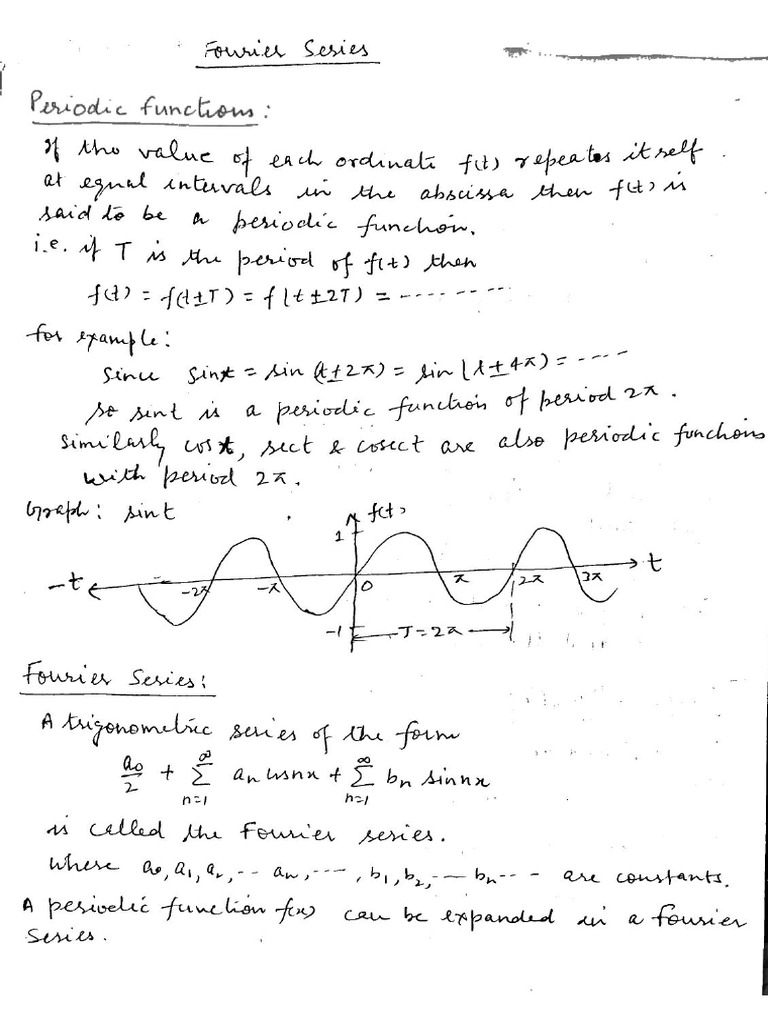 Fourier Series
Periodic functions:
If the value of each ordinate f(t) repeates itself
at equal intervals in the abscissa then f(t) is
said to be a periodic function.
i.e. if T is the period of f(t) then
f(t) = f(t±T) = f(t±2T) = ---------
for example:
Since sint = sin(t±2π) = sin(t±4π) = ----
so sint is a periodic function of period 2π.
Similarly cost, sect & cosect are also periodic functions
with period 2π.
Graph: sint
f(t)
1
-t -2π -π 0 π 2π 3π t
-1 T=2π
Fourier Series:
A trigonometric series of the form
a₀/2 + ∑_{n=1}^{∞} aₙ cosnx + ∑_{n=1}^{∞} bₙ sinnx
is called the Fourier series.
where a₀, a₁, a₂, -- aₙ, ---, b₁, b₂, --- bₙ --- are constants.
A periodic function f(x) can be expanded in a Fourier
Series.